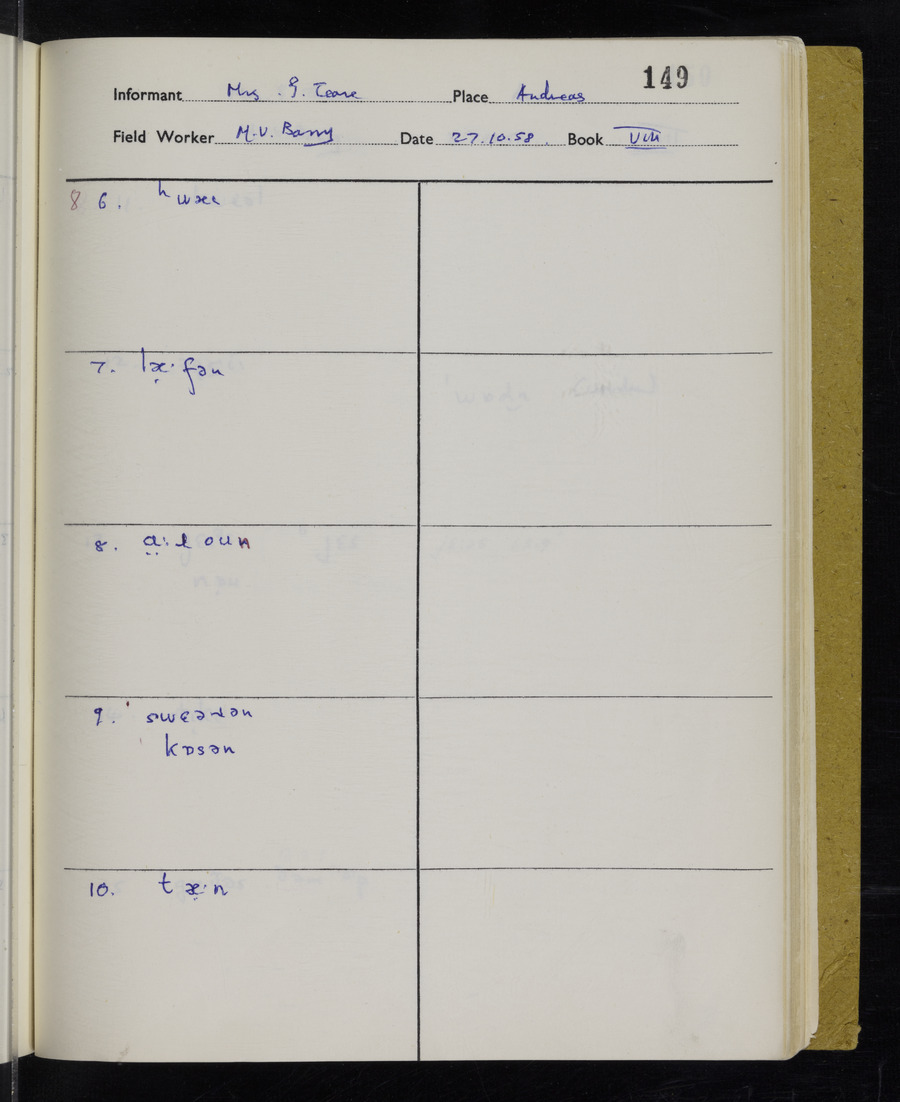 149
Informant Mrs. G. Teare Place Andreas
Field Worker M.V. Barry Date 27.10.58. Book VIII
8 6.
7. læ̣·fən
8. ɑ̤:ɫ oun
9. swɛəɹən
kɒsən
10. t æ̣·n